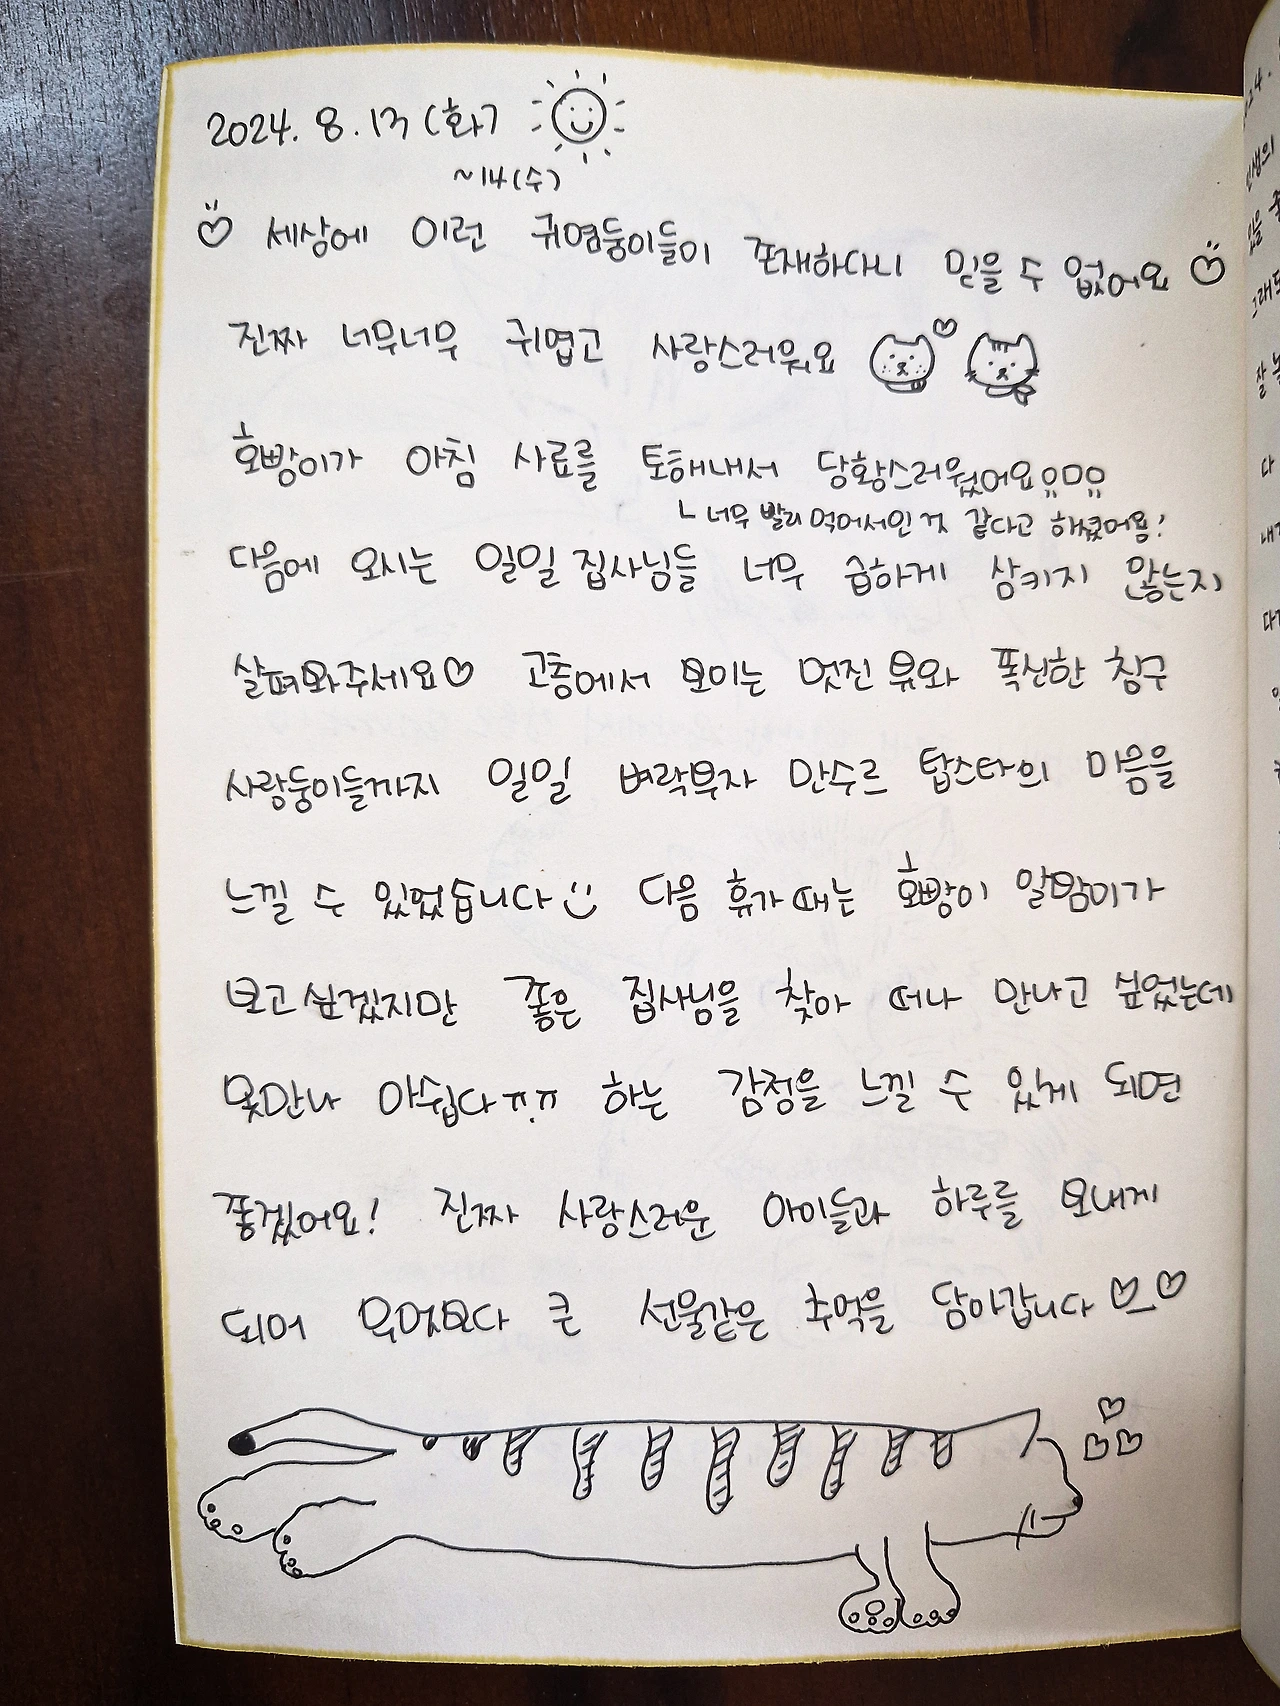 2024. 8. 13 (화)
~14(수)
♡ 세상에 이런 귀염둥이들이 존재하다니 믿을 수 없어요 ♡
진짜 너무너무 귀엽고 사랑스러워요
호빵이가 아침 사료를 토해내서 당황스러웠어요
ㄴ너무 빨리 먹어서인 것 같다고 하셨어욤!
다음에 오시는 일일 집사님들 너무 급하게 삼키지 않는지
살펴봐주세요♡ 고층에서 보이는 멋진 뷰와 폭신한 침구
사랑둥이들까지 일일 벼락부자 만수르 탑스타의 마음을
느낄 수 있었습니다 다음 휴가 때는 호빵이 알밤이가
보고싶겠지만 좋은 집사님을 찾아 떠나 만나고 싶었는데
못만나 아쉽다ㅠ.ㅠ 하는 감정을 느낄 수 있게 되면
좋겠어요! 진짜 사랑스러운 아이들과 하루를 보내게
되어 무엇보다 큰 선물같은 추억을 담아갑니다♡_♡